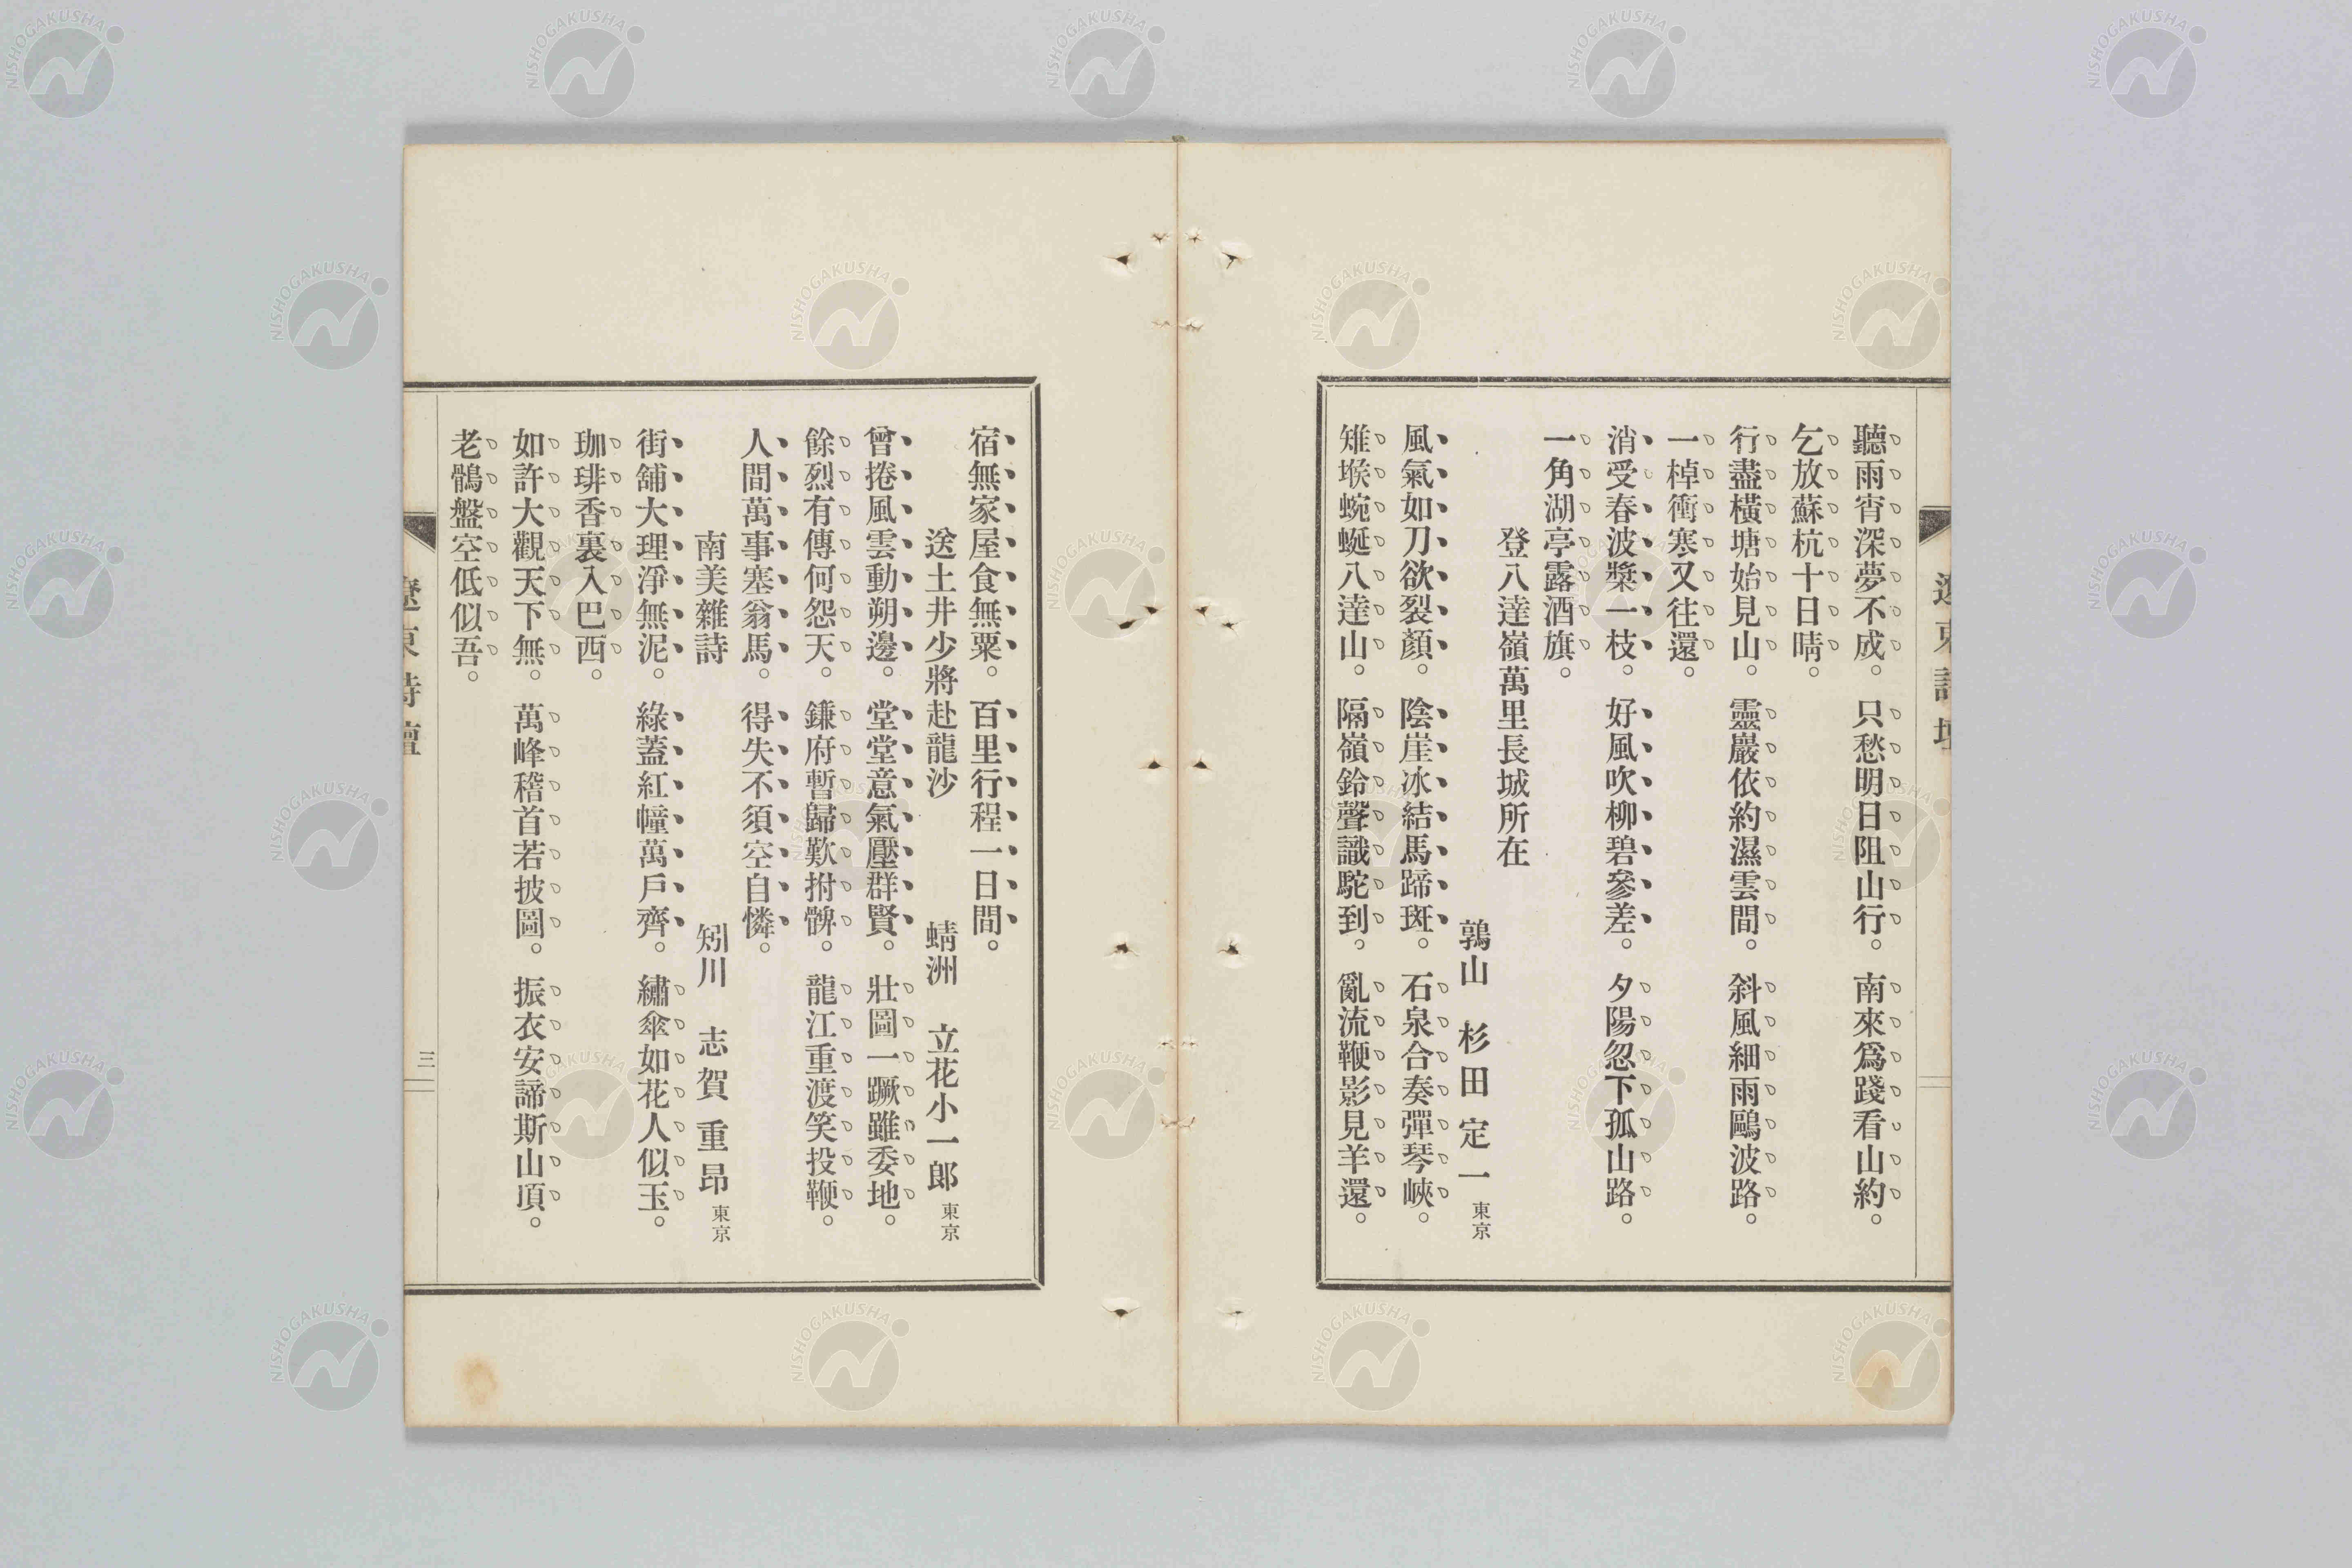 聽雨宵深夢不成。只愁明日阻山行。南來爲踐看山約。
乞放蘇杭十日晴。
行盡橫塘始見山。靈巖依約濕雲間。斜風細雨鷗波路。
一棹衝寒又往還。
消受春波槳一枝。好風吹柳碧參差。夕陽忽下孤山路。
一角湖亭露酒旗。
登八達嶺萬里長城所在
鶉山 杉田定一 東京
風氣如刀欲裂顏。陰崖冰結馬蹄斑。石泉合奏彈琴峽。
雉堠蜿蜒八達山。隔嶺鈴聲識駝到。亂流鞭影見羊還。
宿無家屋食無粟。百里行程一日間。
送土井少將赴龍沙
蜻洲 立花小一郎 東京
曾捲風雲動朔邊。堂堂意氣壓群賢。壯圖一蹶雖委地。
餘烈有傳何怨天。鎌府暫歸歎拊髀。龍江重渡笑投鞭。
人間萬事塞翁馬。得失不須空自憐。
南美雜詩
矧川 志賀重昂 東京
街舖大理淨無泥。綠蓋紅幢萬戶齊。繡傘如花人似玉。
珈琲香裏入巴西。
如許大觀天下無。萬峰稽首若披圖。振衣安諦斯山頂。
老鶻盤空低似吾。
遼東詩壇
三
NISHOGAKUSHA